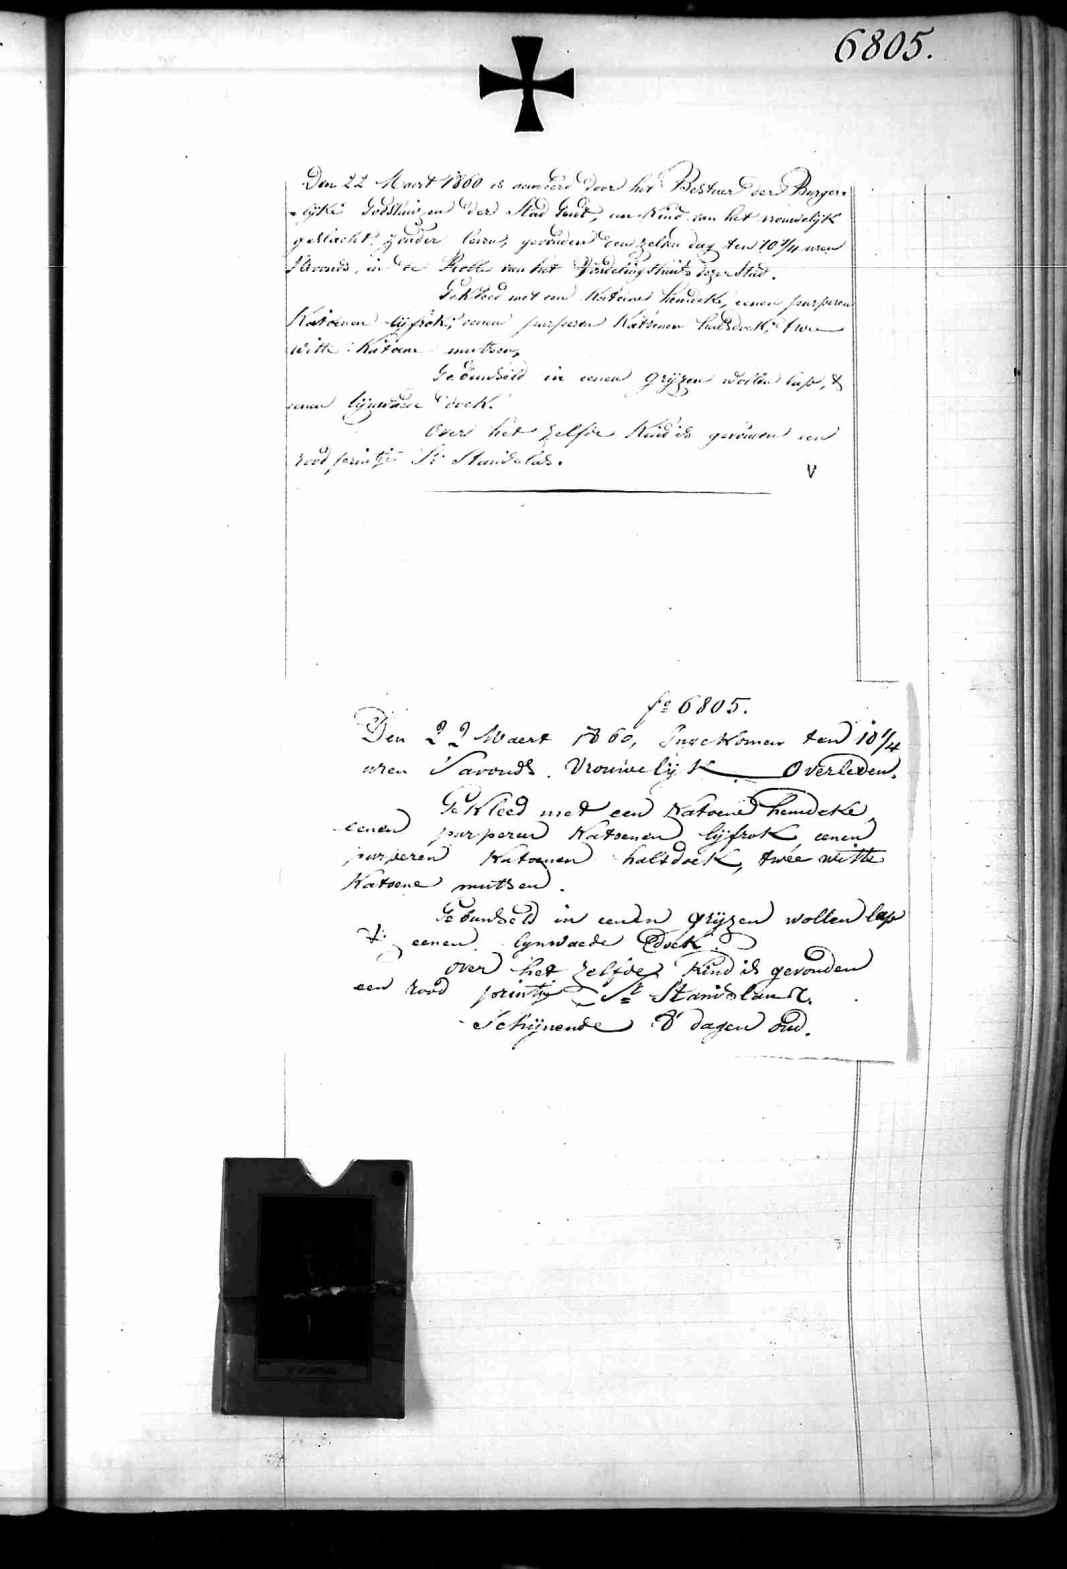 6805.
Den 22 Maert 1860 is aenveerd door het Bestuer der Burger-
-lijke Godshuizen der Stad Gent, een kind van het vrouwelijk
geslacht, zonder leven, gevonden den zelven dag ten 10 1/4 uren
s'Avonds, in de Rolle van het Vondelingshuis dezer Stad.
Gekleed met een Katoene hemdeke, eenen purperen
Katoenen lijfrok, eenen purperen Katoenen halsdoek, twee
witte Katoene mutsen,
Gebunseld in eenen grijzen wollen lap, &
eenen lijnwaede doek.
Over het zelfde Kind is gevonden een
rood printje St. Stanislas.
V
fo 6805.
Den 22 Maert 1860, Ingekomen ten 10 1/4
uren S'avonds. Vrouwelijk Overleden.
Gekleed met een Katoene hemdeke
eenen purperen Katoenen lijfrok eenen
purperen Katoenen halsdoek, twée witte
Katoene mutsen.
Gebunseld in eenen grijzen wollen lap
&. eenen lynwaede doek.
over het zelfde Kind is gevonden
een rood printje St Stanislaus.
Schijnende 8 dagen oud.